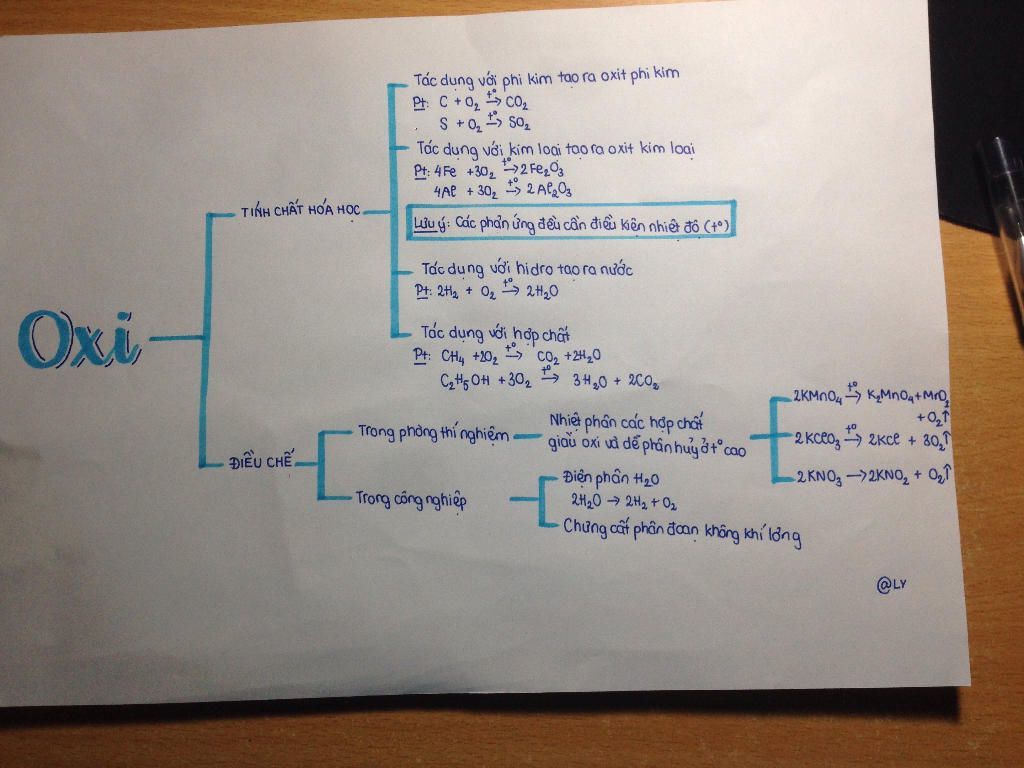 Oxi
TÍNH CHẤT HÓA HỌC
Tác dụng với phi kim tạo ra oxit phi kim
Pt: C + O₂ t°→ CO₂
S + O₂ t°→ SO₂
Tác dụng với kim loại tạo ra oxit kim loại
Pt: 4Fe + 3O₂ t°→ 2Fe₂O₃
4Al + 3O₂ t°→ 2Al₂O₃
Lưu ý: Các phản ứng đều cần điều kiện nhiệt độ (t°)
Tác dụng với hidro tạo ra nước
Pt: 2H₂ + O₂ t°→ 2H₂O
Tác dụng với hợp chất
Pt: CH₄ + 2O₂ t°→ CO₂ + 2H₂O
C₂H₅OH + 3O₂ t°→ 3H₂O + 2CO₂
ĐIỀU CHẾ
Trong phòng thí nghiệm
Nhiệt phân các hợp chất
giàu oxi và dể phân huỷ ở t° cao
2KMnO₄ t°→ K₂MnO₄ + MnO₂
+ O₂↑
2KClO₃ t°→ 2KCl + 3O₂↑
2KNO₃ → 2KNO₂ + O₂↑
Trong công nghiệp
Điện phân H₂O
2H₂O → 2H₂ + O₂
Chưng cất phân đoạn không khí lỏng
@LY